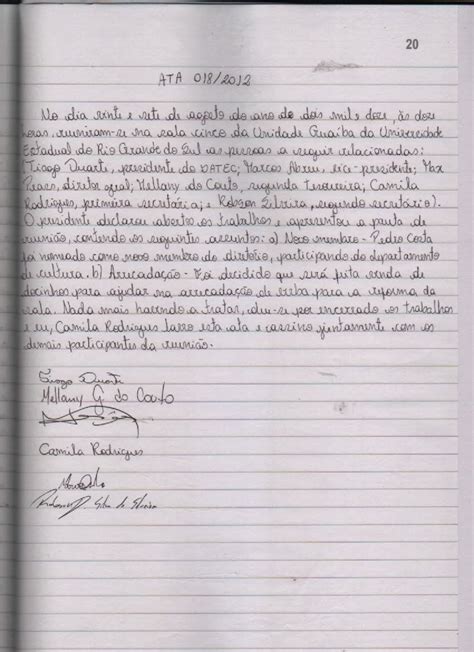 20
ATA 018/2012
No dia vinte e sete de agosto do ano de dois mil e doze, às doze
horas, reuniram-se na sala cinco da Unidade Guaíba da Universidade
Estadual do Rio Grande do Sul as pessoas a seguir relacionadas:
Tiago Duarte, presidente do DATEC; Marcos Abreu, vice-presidente; Max
diretor geral; Mellany do Couto, segunda tesoureira; Camila
Rodrigues, primeira secretária; e Robson Silveira, segundo secretário).
O presidente declarou aberto os trabalhos e apresentou a pauta de
reunião, contendo os seguintes assuntos: a) Novo membro - Pedro Costa
foi nomeado como novo membro do diretório, participando do departamento
de cultura. b) Arrecadação - Foi decidido que será feita venda de
docinhos para ajudar na arrecadação de verba para a reforma da
sala. Nada mais havendo a tratar, deu-se por encerrado os trabalhos
e eu, Camila Rodrigues lavro esta ata e assino juntamente com os
demais participantes da reunião.
Tiago Duarte
Mellany G. do Couto
Camila Rodrigues
Silva da Silveira